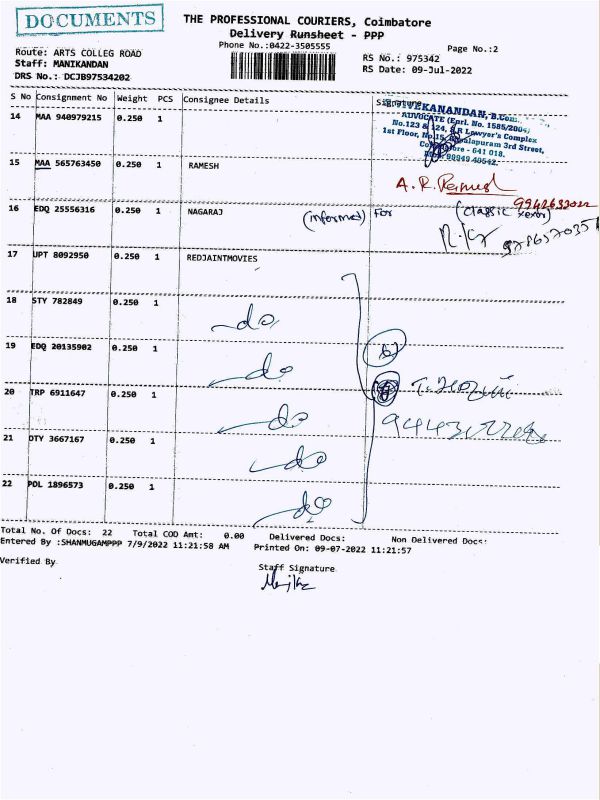 DOCUMENTS
THE PROFESSIONAL COURIERS, Coimbatore
Delivery Runsheet - PPP
Phone No.:0422-3505555
Page No.:2
Route: ARTS COLLEG ROAD
Staff: MANIKANDAN
DRS No.: DCJB97534202
RS No.: 975342
RS Date: 09-Jul-2022
S No Consignment No Weight PCS Consignee Details Signature
14 MAA 940979215 0.250 1
VEKANANDAN, B.Com.
ADVOCATE (Enrl. No. 1585/2004)
No.123 & 124, Lawyer's Complex
1st Floor, 3rd Street,
641 018.
15 MAA 565763450 0.250 1 RAMESH
A. R. Ramesh
9942633022
16 EDQ 25556316 0.250 1 NAGARAJ
(informed) For (classic xerox)
17 UPT 8092950 0.250 1 REDJAINTMOVIES
18 STY 782849 0.250 1
do
19 EDQ 20135902 0.250 1
do
20 TRP 6911647 0.250 1
do
21 OTY 3667167 0.250 1
do
22 POL 1896573 0.250 1
do
Total No. Of Docs: 22 Total COD Amt: 0.00 Delivered Docs: Non Delivered Docs:
Entered By :SHANMUGAMPPP 7/9/2022 11:21:58 AM Printed On: 09-07-2022 11:21:57
Verified By
Staff Signature